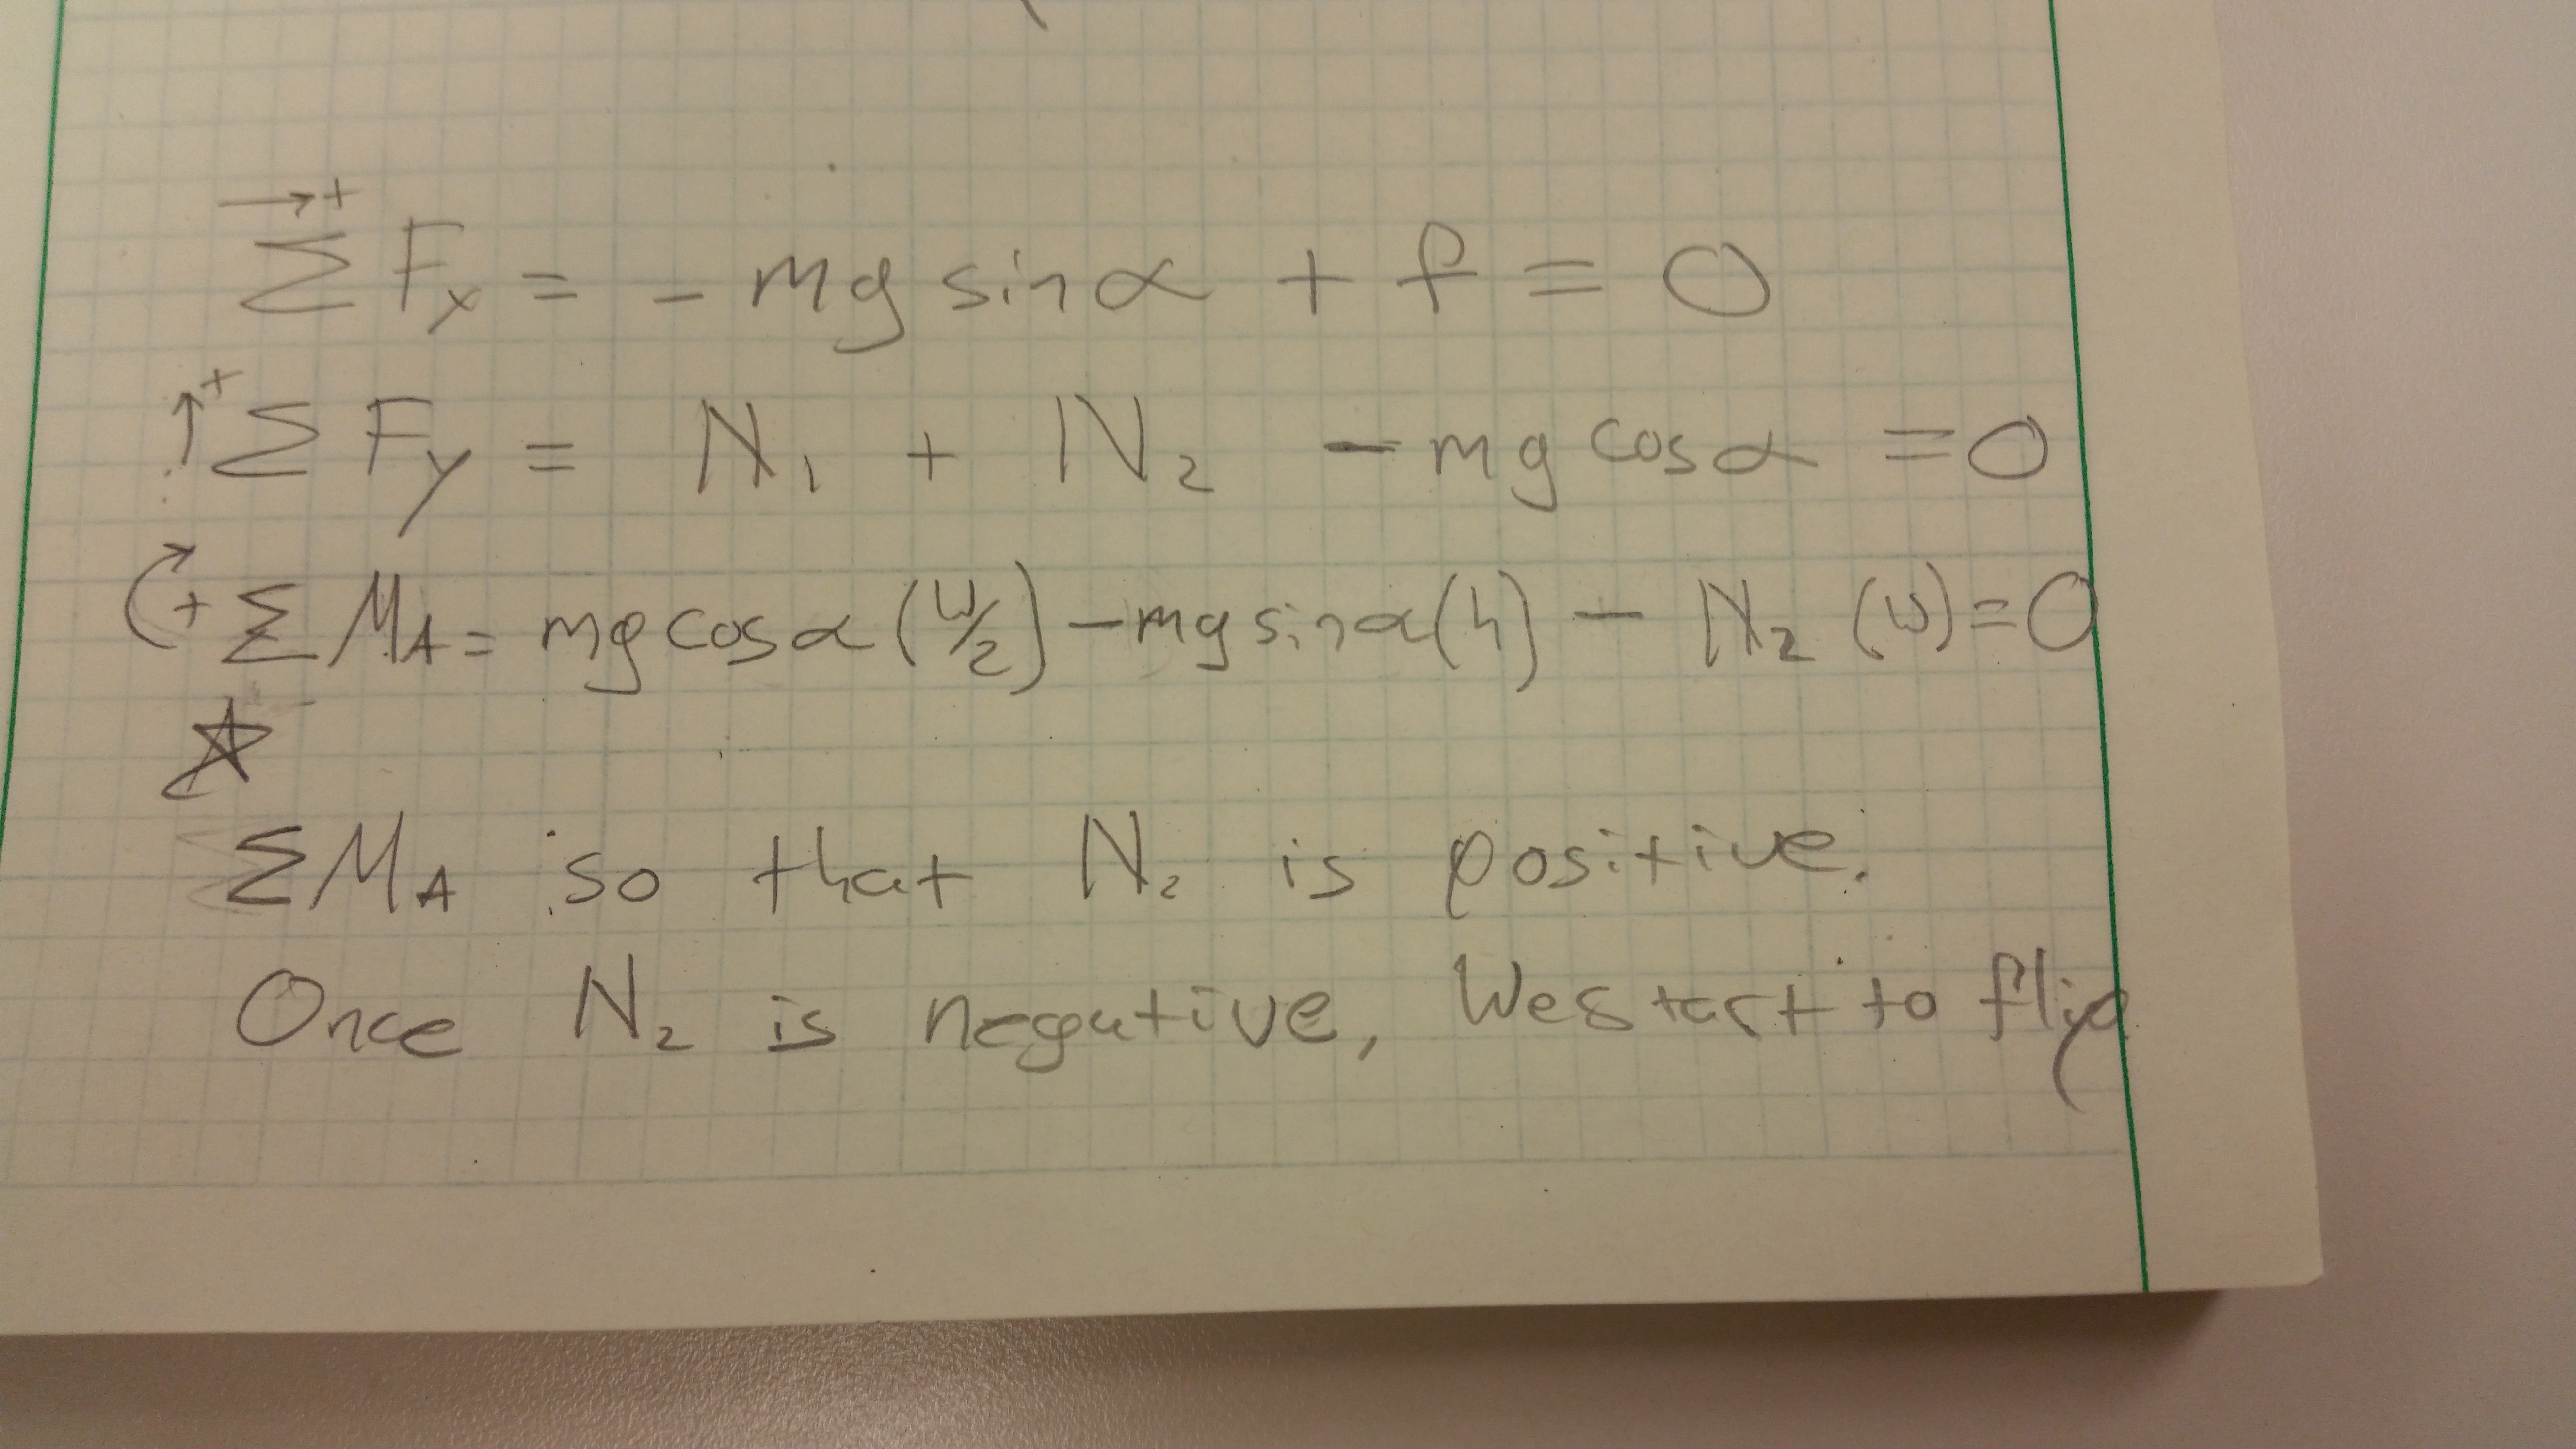 →+ ΣFx = - mg sinα + f = 0
↑+ ΣFy = N₁ + N₂ - mg cosα = 0
↷+ ΣMA = mg cosα (w/2) - mg sinα(h) - N₂ (w) = 0
☆ ΣMA so that N₂ is positive.
Once N₂ is negative, we start to flip